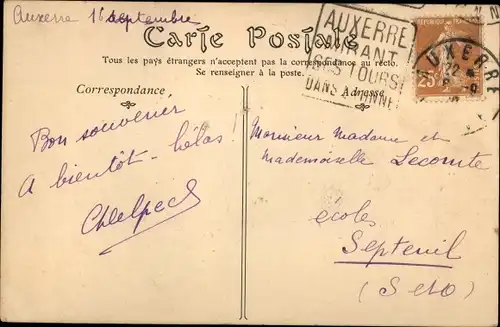 Auxerre 16 septembre
Carte Postale
Tous les pays étrangers n'acceptent pas la correspondance au recto.
Se renseigner à la poste.
Correspondance
Adresse
AUXERRE
MIRANT
SES TOURS
DANS L'YONNE
AUXERRE
22
25c
Bon souvenir
A bientôt - hélas
Monsieur Madame et
Mademoiselle Lecomte
écoles
Septeuil
(S et O)